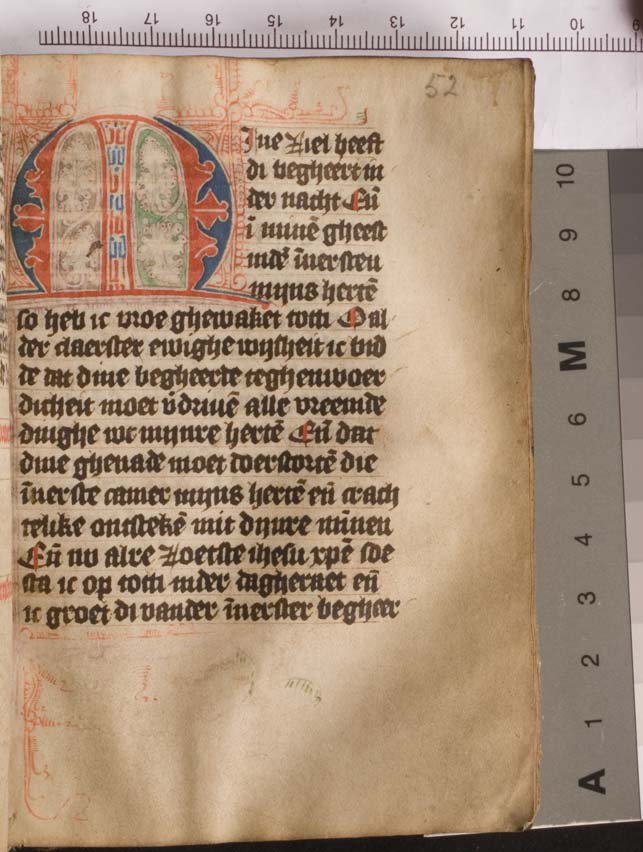 18 17 16 15 14 13 12 11 10 9
52
Mijne ziel heeft
di begheert in
der nacht Eñ
ī minē gheest
indē īnersten
mijns hertē
so heb ic vroe ghewaket totti O al
der claerster ewighe wijsheit ic bid
de dat dine begheerte teghenwoer
dicheit moet v̄driuē alle vreemde
dinghe wt mijnre hertē Eñ dat
dine ghenade moet doerstortē die
īnerste camer mijns hertē eñ crach
telike ontstekē mit dijnre mīnen
Eñ nv alre zoetste ihesu xpē soe
sta ic op totti inder dagheraet eñ
ic groet di vander īnerster begheer
10
9
8
M
6
5
4
3
2
1
A